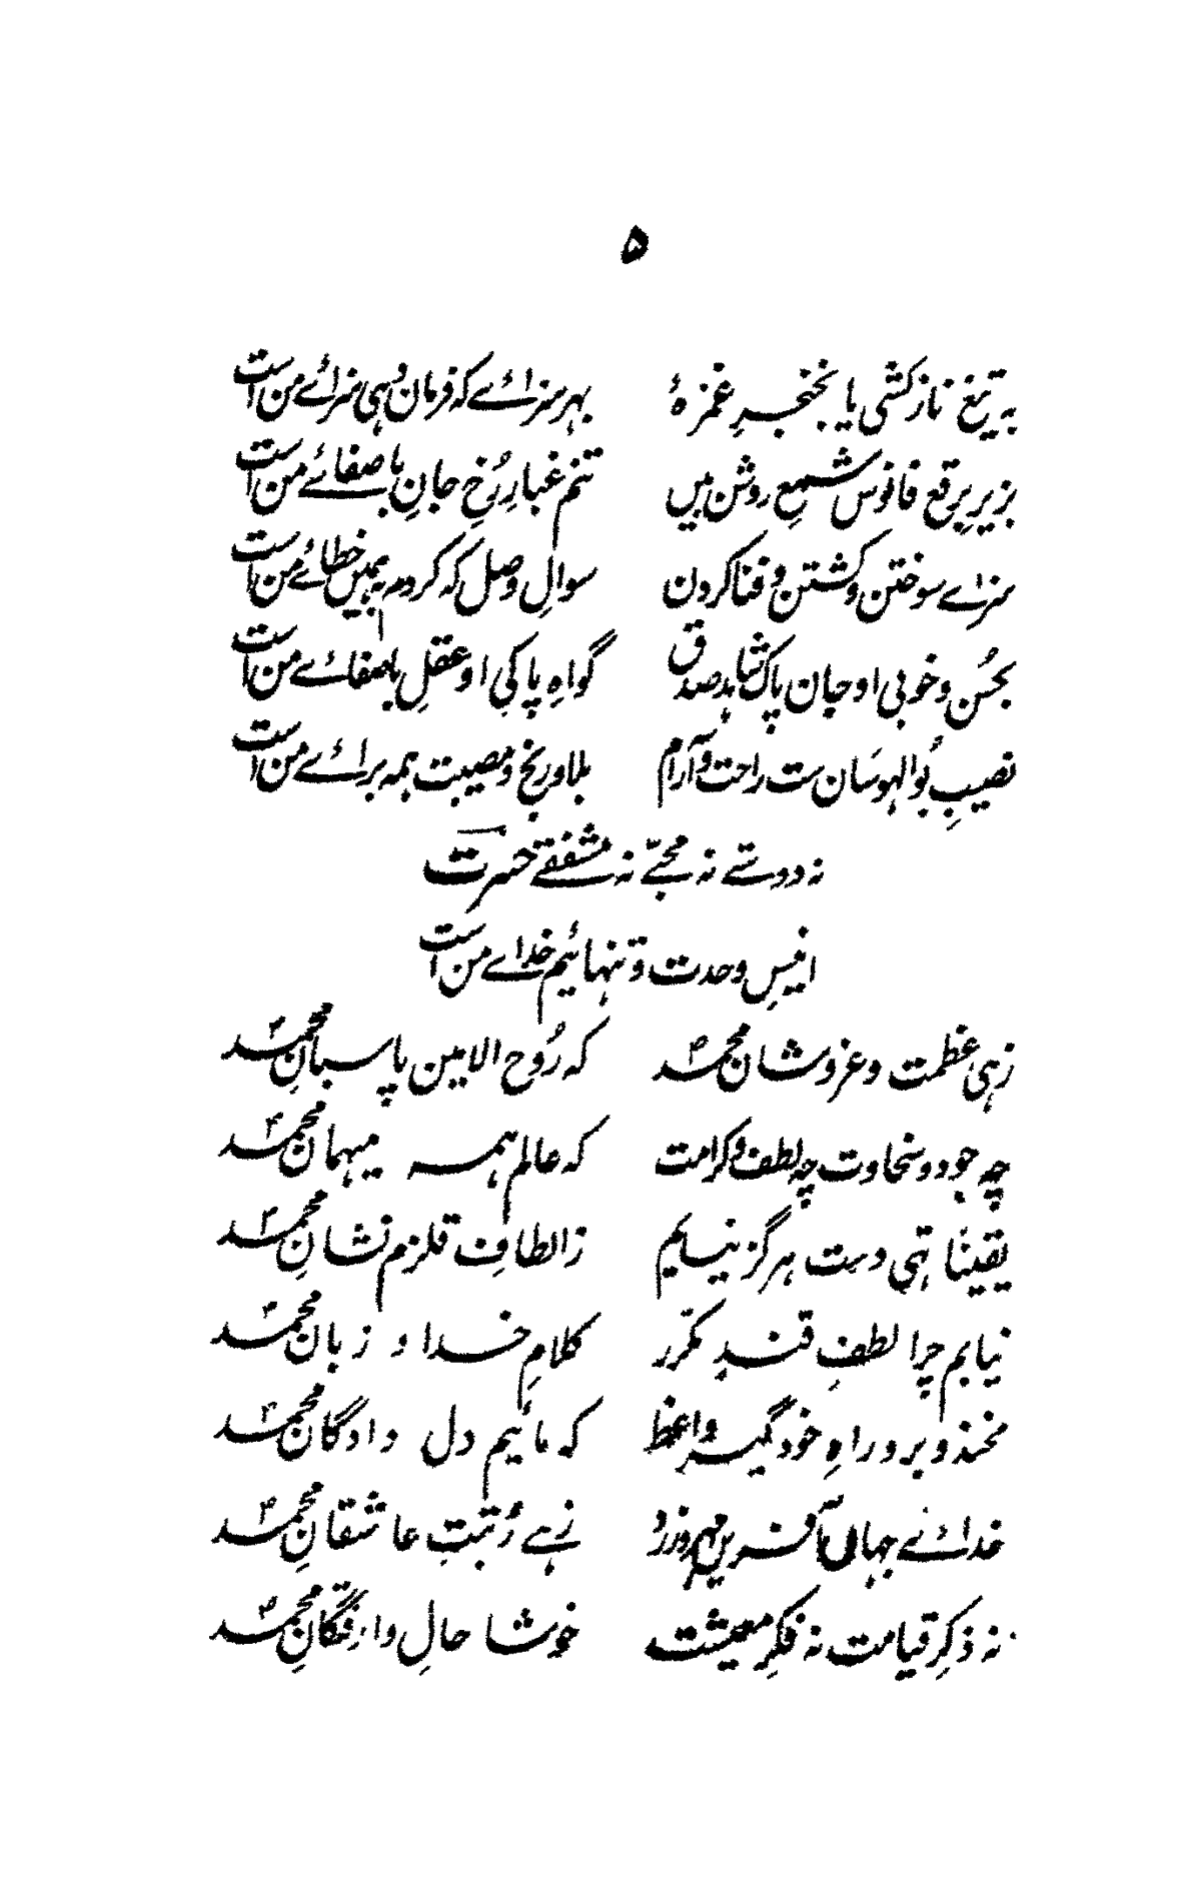 ۵
بہ تیغ ناز کشی یا بخنجرِ غمزۂ بہر سزائے کہ فرمان دہی سزائے من است
بزیرِ برقع فانوس شمعِ روشن بیں تنم غبارِ رُخِ جانِ باصفائے من است
سزاے سوختن و کشتن و فنا کردن سوالِ وصل کہ کردم ہمیں خطائے من است
بحُسن و خوبی او جان پاک شاہد صدق گواہِ پاکیِ او عقلِ باصفائے من است
نصیبِ بُوالہوسَان ست راحت و آرام بلا و رنج و مصیبت ہمہ برائے من است
نہ دوستے نہ محبّے نہ مشفقے حسرت
انیسِ وحدت و تنہائیم خداے من است
زہی عظمت و عز و شان محمدؐ کہ رُوح الامین پاسبانِ محمدؐ
چہ جود و سخاوت چہ لطف و کرامت کہ عالم ہمہ میہمان محمدؐ
یقیناً تہی دست ہرگز نیایم ز الطافِ قلزم نشانِ محمدؐ
نیابم چرا لطفِ قندِ مکرّر کلامِ خدا و زبان محمدؐ
مخند و برو راہِ خود گیر واعظ کہ مائیم دل دادگان محمدؐ
خدائے جہاں آفریں مہر ورزد زہے رُتبتِ عاشقانِ محمدؐ
نہ ذکرِ قیامت نہ فکرِ معیشت خوشا حالِ وارفتگانِ محمدؐ